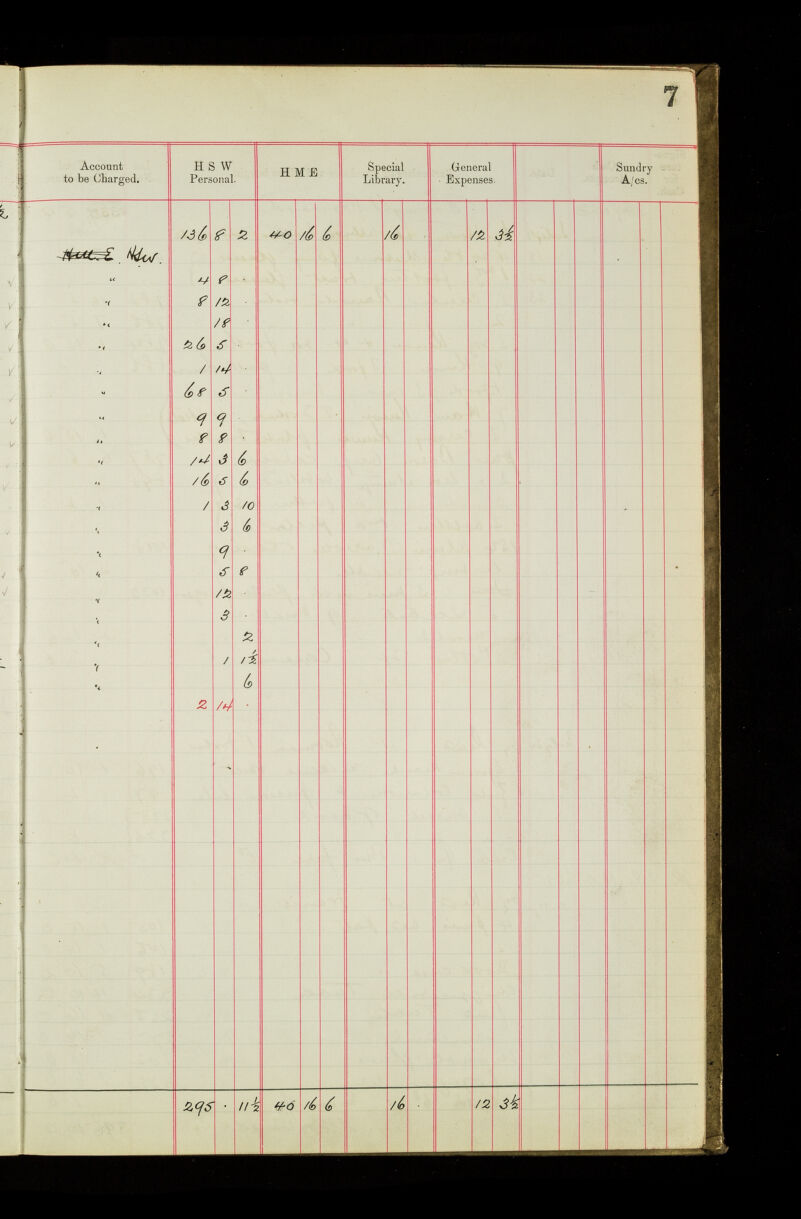 7
Account to be Charged. H S W Personal. H M E Special Library. General Expenses. Sundry A/cs.
136 8 2 40 16 6 16 · 12 3½
Hsw.
" 4 8 ·
" 8 12 ·
" 18 ·
" 26 5 ·
" 1 14 ·
" 68 5 ·
" 9 9 ·
" 8 8 ·
" 14 3 6
" 16 5 6
" 1 3 10
" 3 6
" 9 ·
" 5 8
" 12
" 3 ·
" 2
" 1 1½
" 6
2 14 ·
295 · 11½ 40 16 6 16 · 12 3½